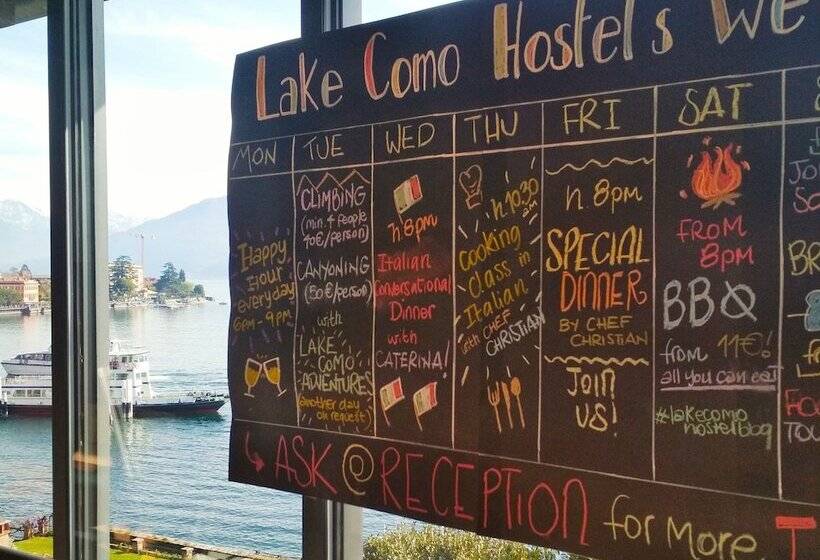 Lake Como Hostel's We
MON
TUE
WED
THU
FRI
SAT
Happy
Hour
everyday
6PM-9PM
CLIMBING
(min. 4 people
40€/person)
CANYONING
(50€/person)
with
LAKE
COMO
ADVENTURES
(another day
on request)
h.8pm
Italian
Conversational
Dinner
with
CATERINA!
h.10:30
am
Cooking
Class in
Italian
with CHEF
CHRISTIAN
h.8pm
SPECIAL
DINNER
BY CHEF
CHRISTIAN
Join
US!
FROM
8PM
BBQ
from 11€!
all you can eat
#lakecomo
hostelbbq
ASK @ RECEPTION for more